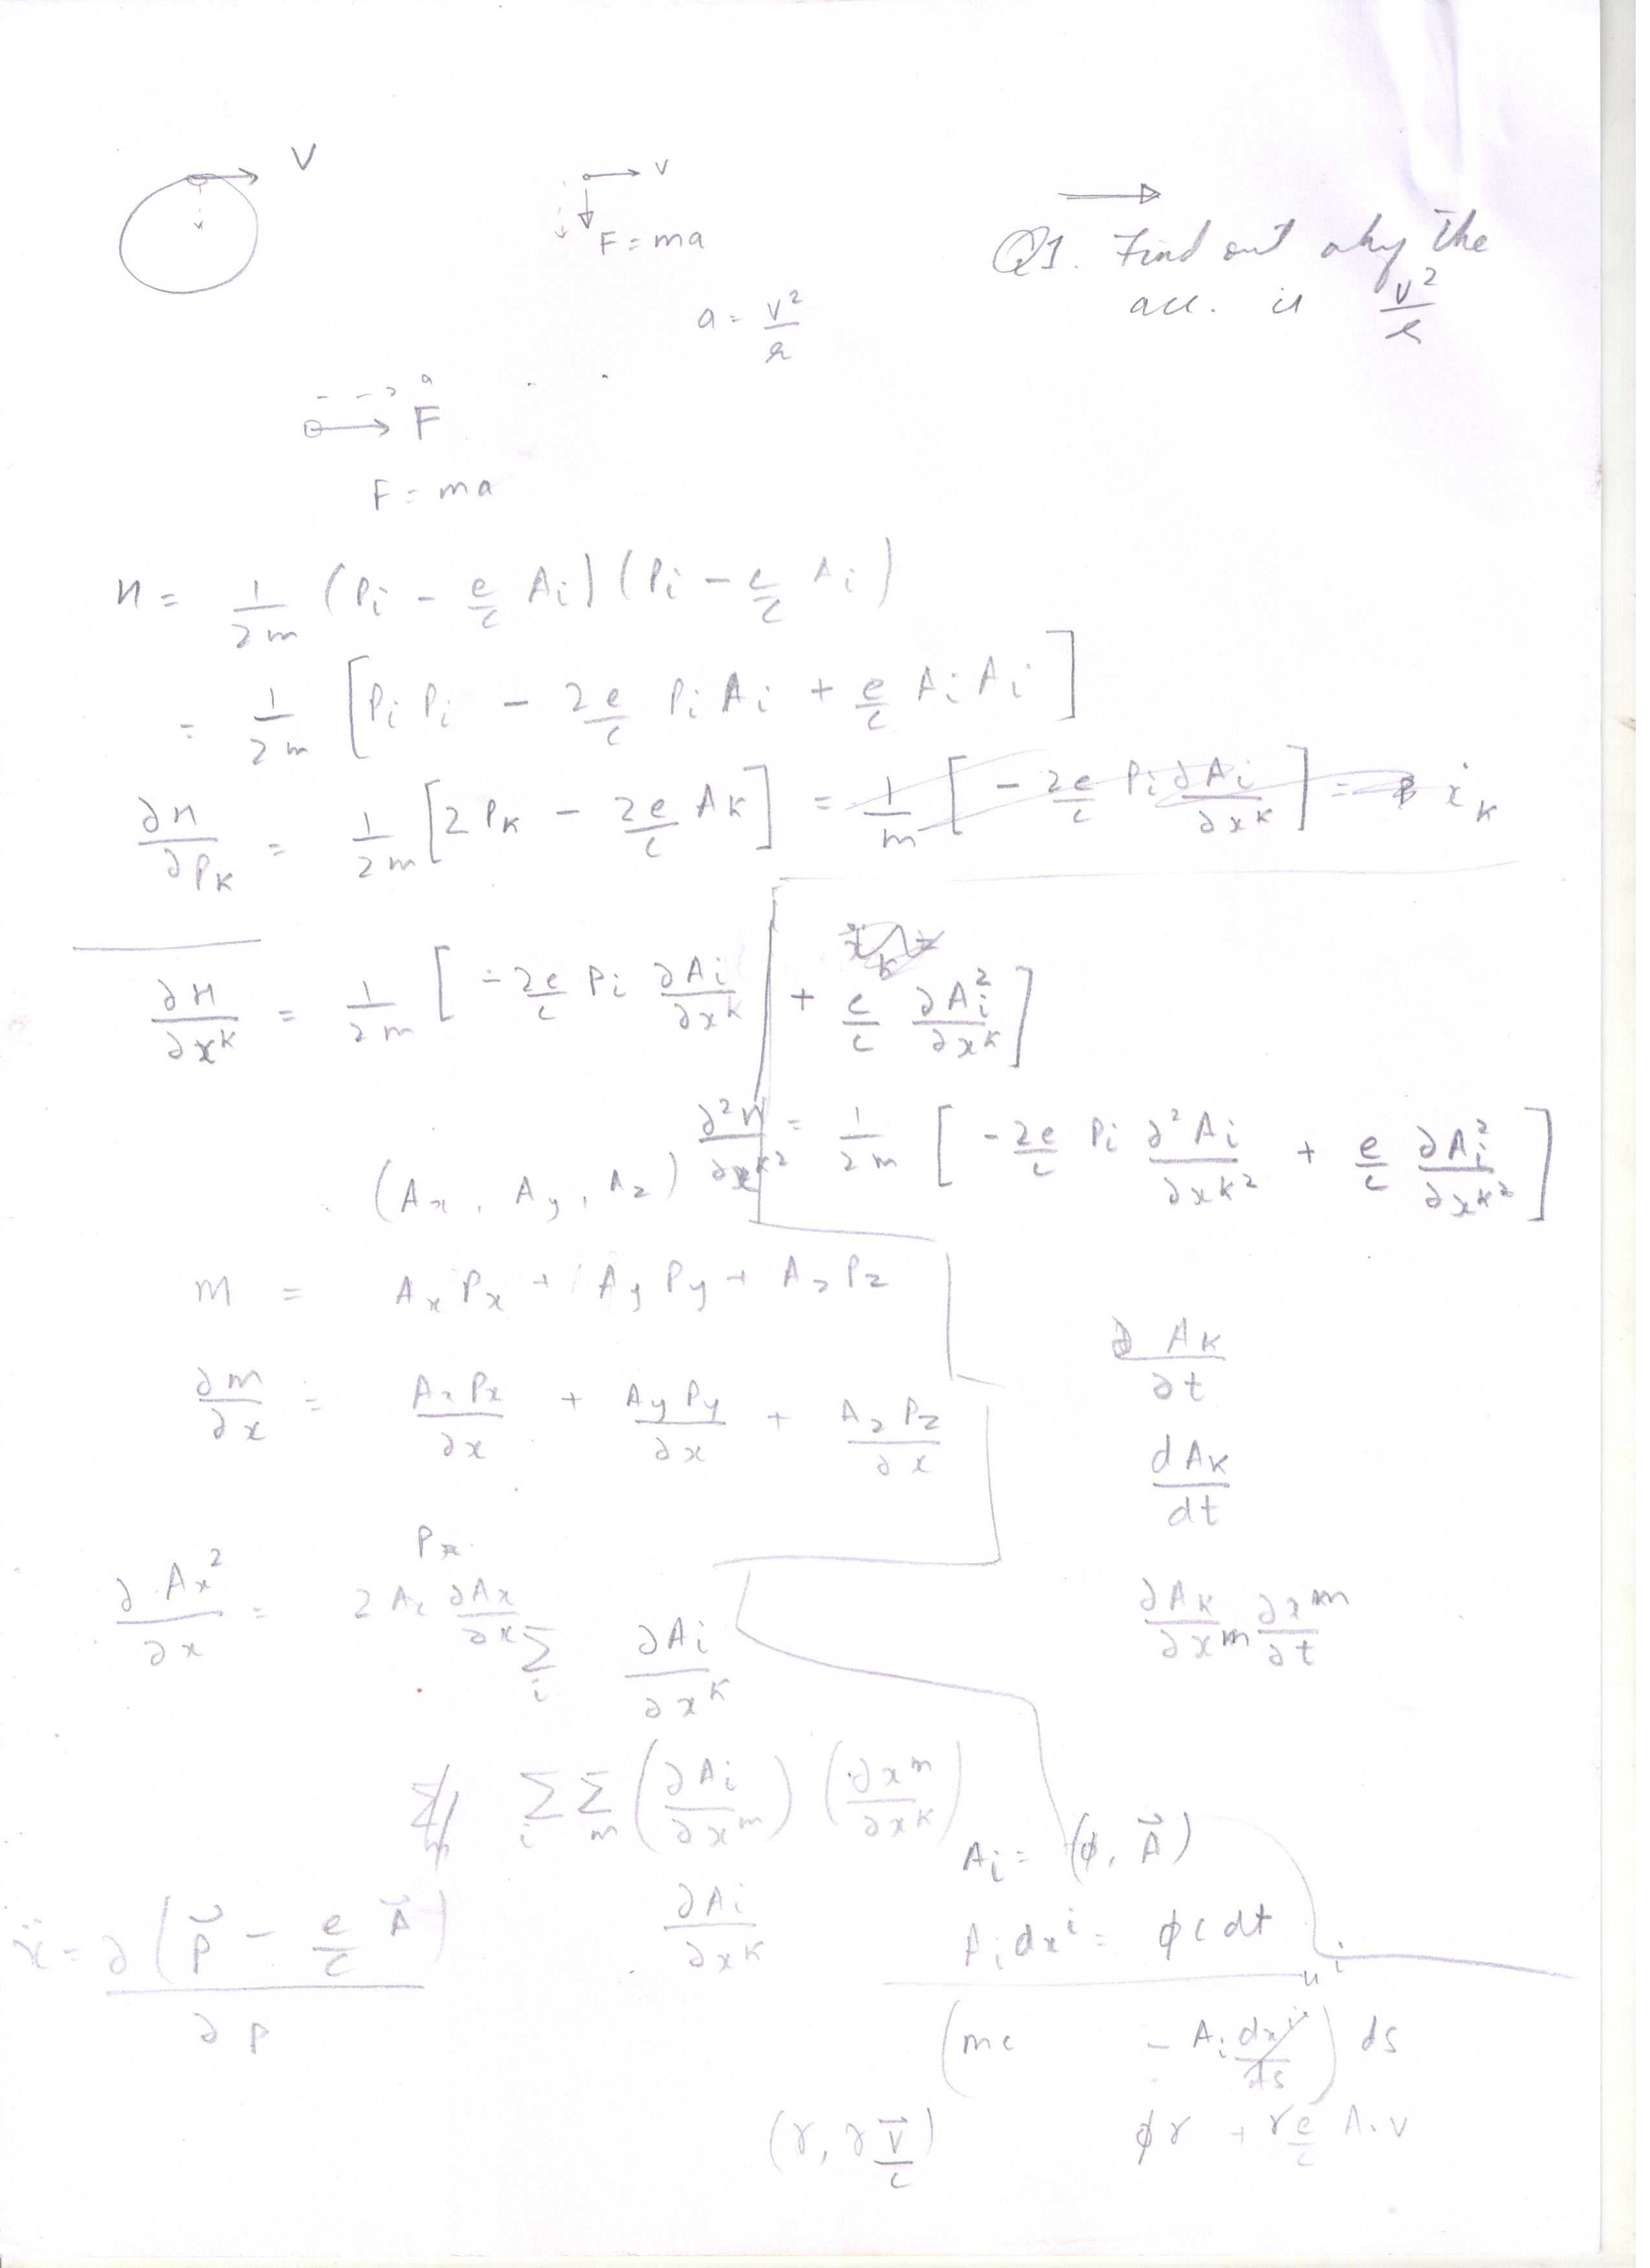 V
v
F = ma
a = v²/r
Q1. Find out why the
acc. is v²/r
a
F
F = ma
H = 1/2m (Pi - e/c Ai) (Pi - e/c Ai)
= 1/2m [Pi Pi - 2e/c Pi Ai + e/c Ai Ai]
∂H/∂PK = 1/2m [2 PK - 2e/c AK] = 1/m [- 2e/c Pi ∂Ai/∂x^K] = ẋK
∂H/∂x^K = 1/2m [-2e/c Pi ∂Ai/∂x^K + e/c ∂Ai²/∂x^K]
∂²H/∂x^K² = 1/2m [-2e/c Pi ∂²Ai/∂xK² + e/c ∂Ai²/∂xK²]
(Ax, Ay, Az)
m = Ax Px + Ay Py + Az Pz
∂m/∂x = Ax Px/∂x + Ay Py/∂x + Az Pz/∂x
∂AK/∂t
dAK/dt
Px
∂Ax²/∂x = 2 Ax ∂Ax/∂x
∂AK/∂x^m ∂x^m/∂t
Σi ∂Ai/∂x^K
Σi Σm (∂Ai/∂x^m) (∂x^m/∂x^K)
Ai = (ϕ, A⃗)
∂Ai/∂xK
ẍ = ∂(P⃗ - e/c A⃗)/∂P
Ai dx^i = ϕ c dt
u^i
(mc - Ai dx^i/ds) ds
(γ, γ v⃗/c)
ϕγ + γ e/c A.v